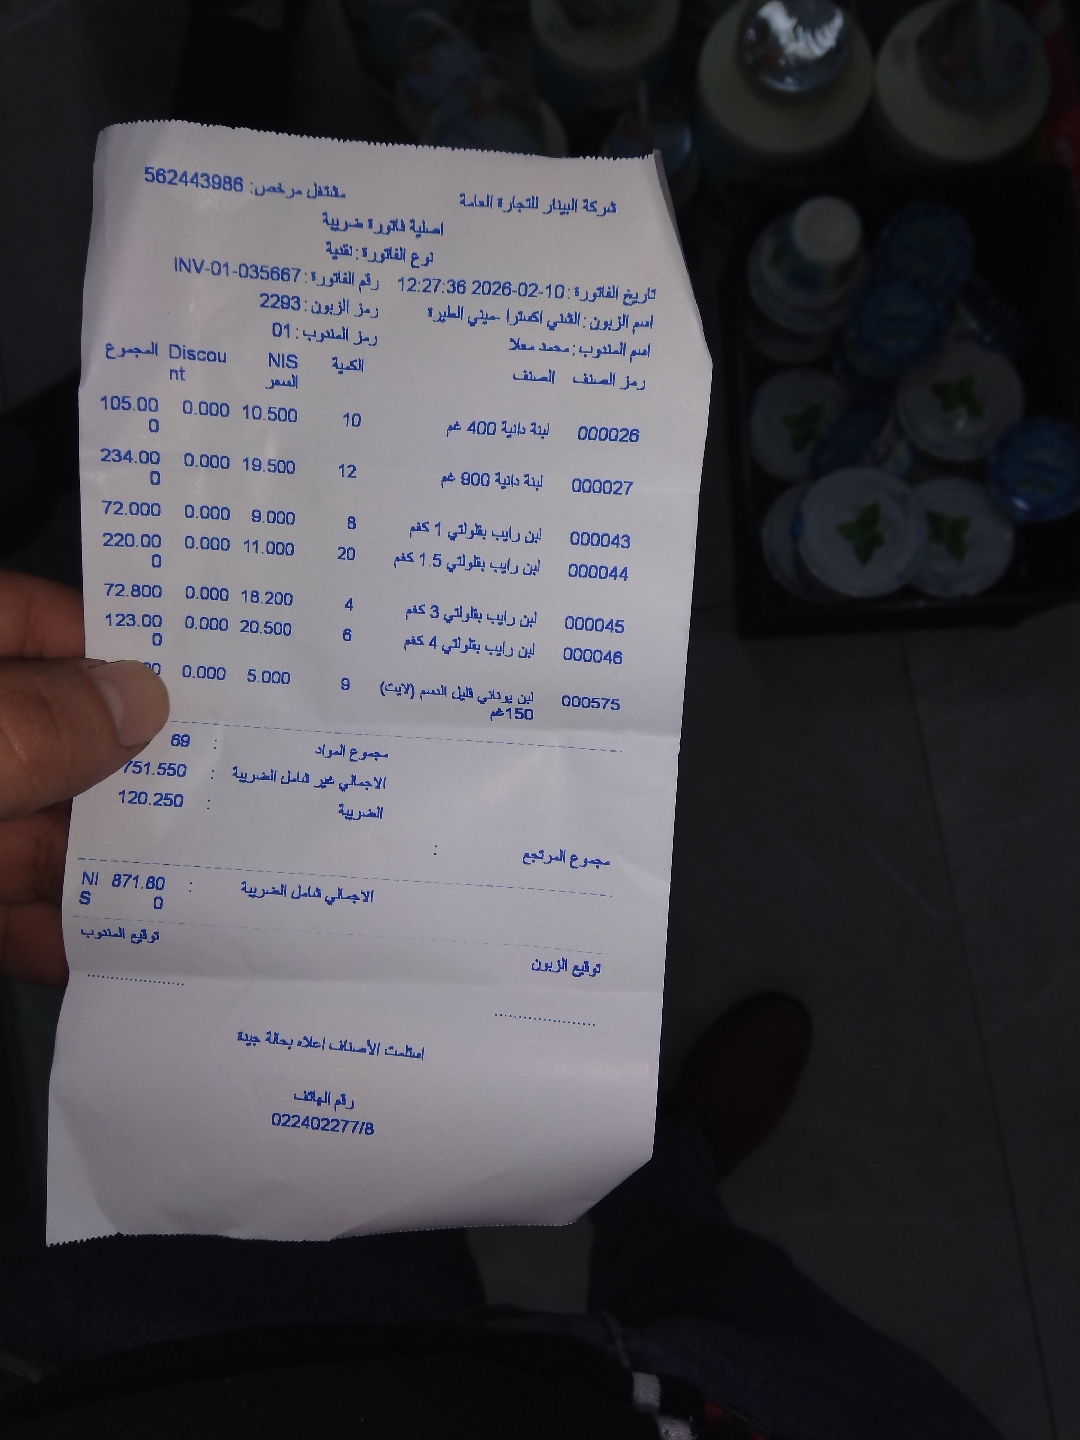 شركة البينار للتجارة العامة مشتغل مرخص: 562443986
اصلية فاتورة ضريبة
نوع الفاتورة: نقدية
تاريخ الفاتورة: 10-02-2026 12:27:36 رقم الفاتورة: INV-01-035667
اسم الزبون: الشني اكسترا -ميني الطيرة رمز الزبون: 2293
اسم المندوب: محمد معلا رمز المندوب: 01
رمز الصنف الصنف الكمية NIS السعر Discount المجموع
000026 لبنة دانية 400 غم 10 10.500 0.000 105.000
000027 لبنة دانية 900 غم 12 19.500 0.000 234.000
000043 لبن رايب بقلولتي 1 كغم 8 9.000 0.000 72.000
000044 لبن رايب بقلولتي 1.5 كغم 20 11.000 0.000 220.000
000045 لبن رايب بقلولتي 3 كغم 4 18.200 0.000 72.800
000046 لبن رايب بقلولتي 4 كغم 6 20.500 0.000 123.000
000575 لبن يوناني قليل الدسم (لايت) 150غم 9 5.000 0.000
مجموع المواد : 69
الاجمالي غير شامل الضريبة : 751.550
الضريبة : 120.250
مجموع المرتجع :
الاجمالي شامل الضريبة : 871.800 NIS
توقيع الزبون توقيع المندوب
..................... .....................
استلمت الأصناف اعلاه بحالة جيدة
رقم الهاتف
022402277/8